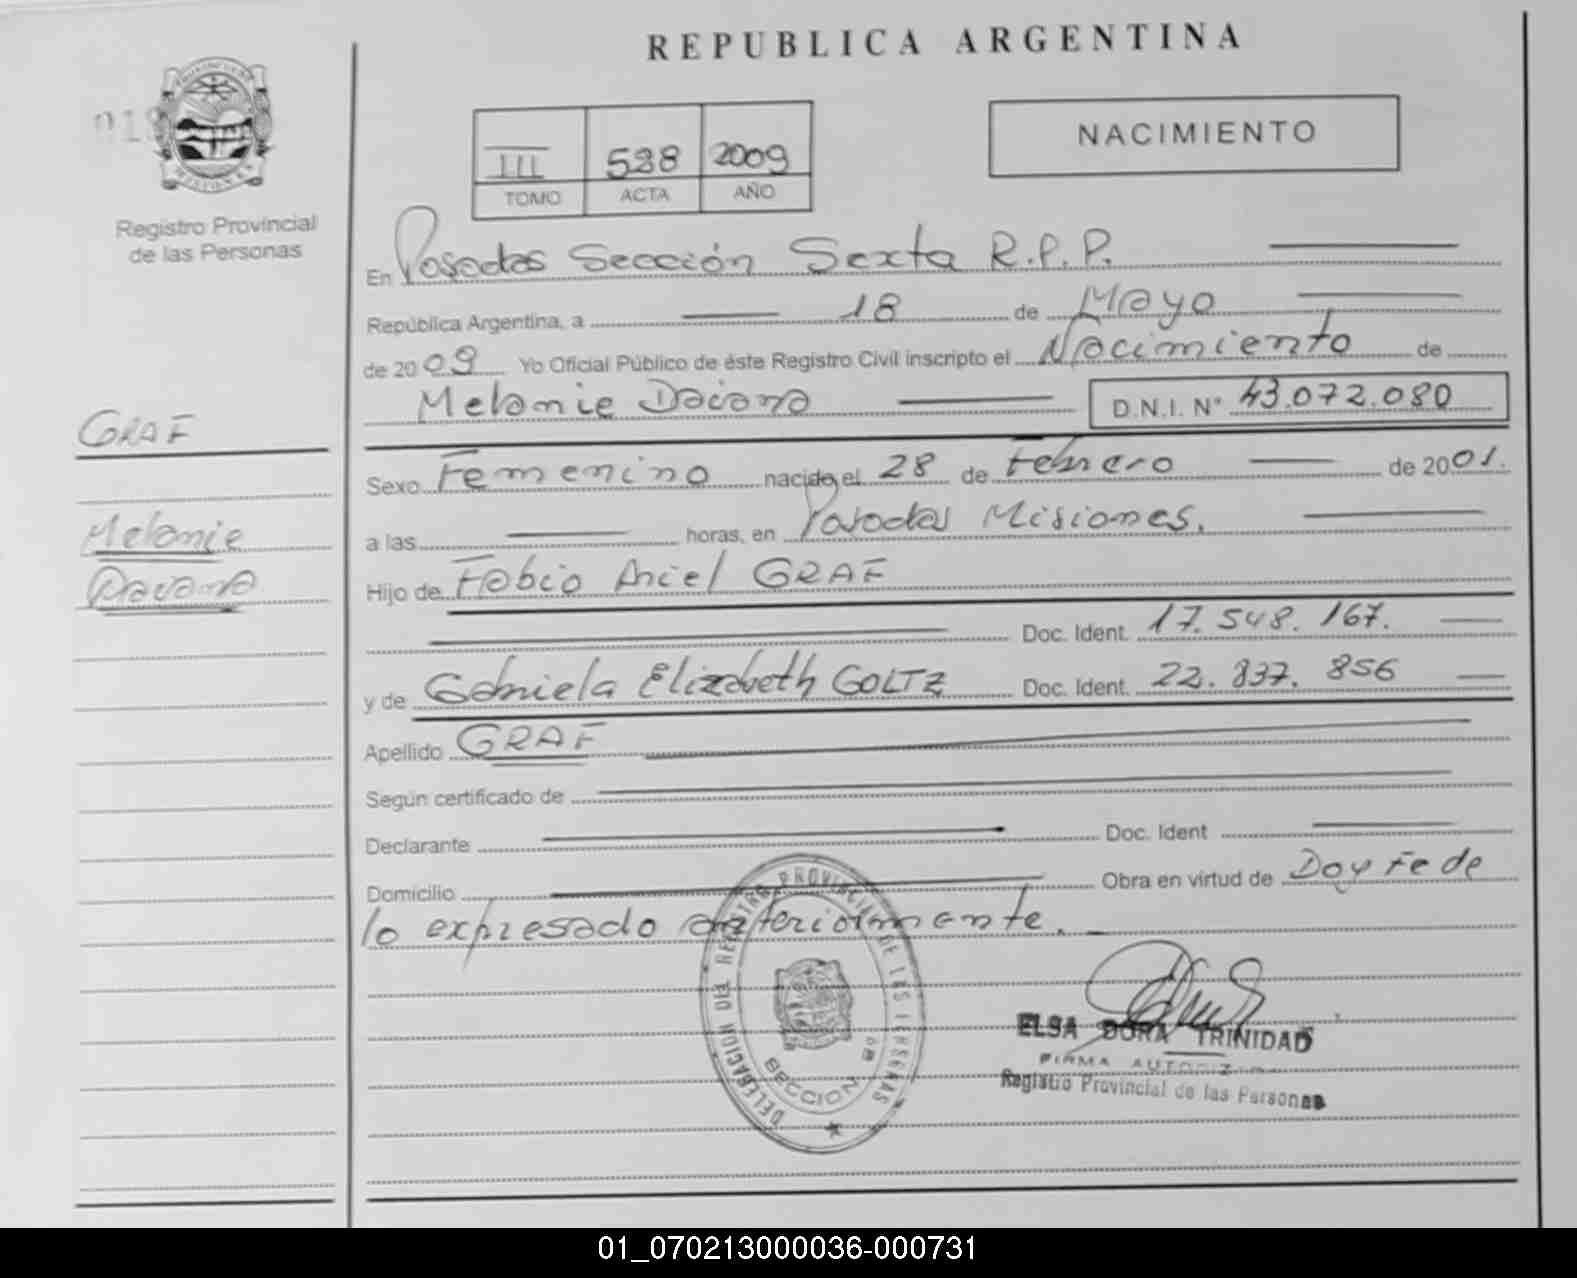 REPUBLICA ARGENTINA
PROVINCIA DE
MISIONES
Registro Provincial
de las Personas
III 538 2009
TOMO ACTA AÑO
NACIMIENTO
En Posadas Sección Sexta R.P.P.
República Argentina, a 18 de Mayo
de 2009 Yo Oficial Público de éste Registro Civil inscripto el Nacimiento de
Melanie Daiana D.N.I. N° 43.072.080
GRAF
Melanie
Daiana
Sexo Femenino nacido el 28 de Febrero de 2001.
a las horas, en Posadas Misiones.
Hijo de Fabio Ariel GRAF
Doc. Ident. 17.548.167.
y de Gabriela Elizabeth GOLTZ Doc. Ident. 22.837.856
Apellido GRAF
Según certificado de
Declarante Doc. Ident
Domicilio Obra en virtud de Doy Fe de
lo expresado anteriormente.
DELEGACION DEL REGISTRO PROVINCIAL DE LAS PERSONAS
SECCION 6a
ELSA DORA TRINIDAD
FIRMA AUTORIZADA
Registro Provincial de las Personas
01_070213000036-000731